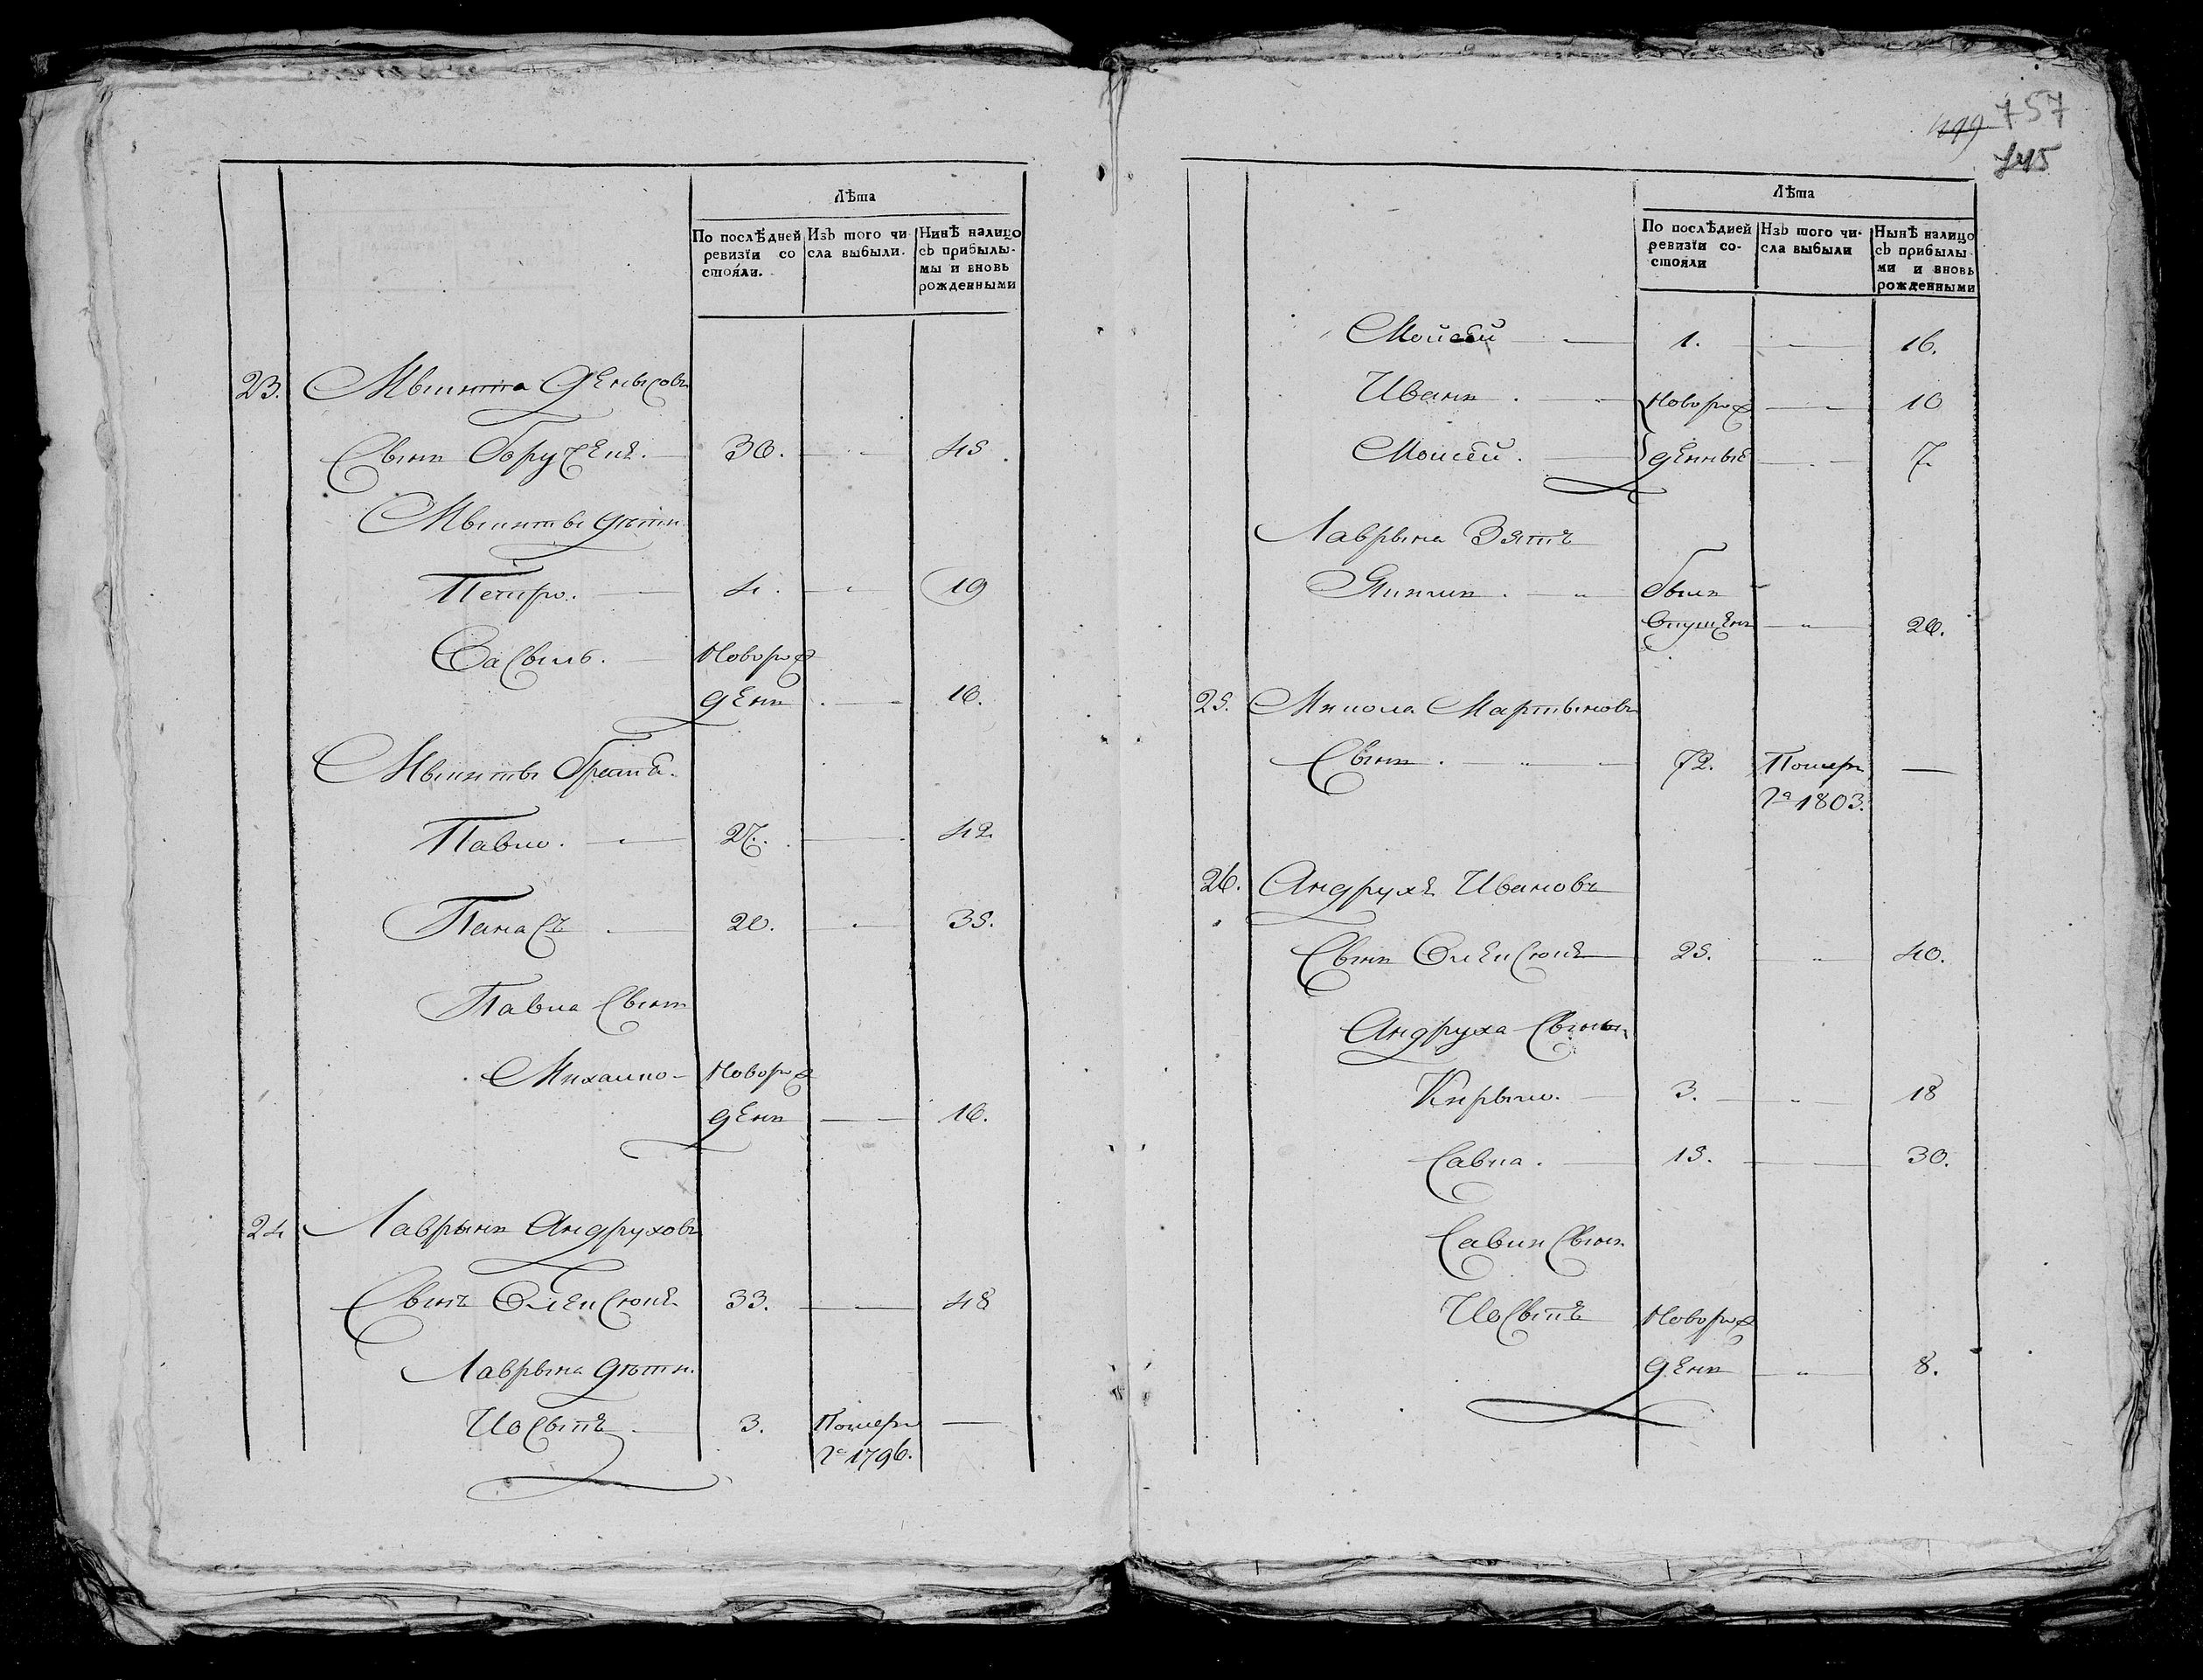 Лѣта
По послѣдней ревизіи состояли.
Изъ того числа выбыли.
Нинѣ налицо съ прибылымы и вновь рожденными
23. Мыкита Денысовъ
Сынъ 30. 45.
Мыкиты дѣти
Петро. 4. 19
Васыль. Новорож
денъ 16.
Мыкиты братья.
Павло. 27. 42
Панасъ 20. 35.
Павла Сынъ
Михайло Новорож
денъ 16.
24 Лаврынъ Андруховъ
Сынъ Олексюкъ 33. 48
Лаврына дѣти.
Иосыпъ 3. Померъ
1796.
757
745
Лѣта
По послѣдней ревизіи состояли
Изъ того числа выбыли
Нынѣ налицо съ прибылыми и вновь рожденными
Мойсѣй 1. 16.
Иванъ Новорож 10
Моисей. денные 7
Лаврына Зять
былъ
опущенъ 20.
25. Микола Мартыновъ
Сынъ 72. Померъ
1803.
26. Андрухъ Ивановъ
Сынъ Олексюкъ 25. 40.
Андруха Сыны
Кирыло. 3. 18
Савка. 15. 30.
Савки Сынъ
Иосыпъ Новорож
денъ 8.